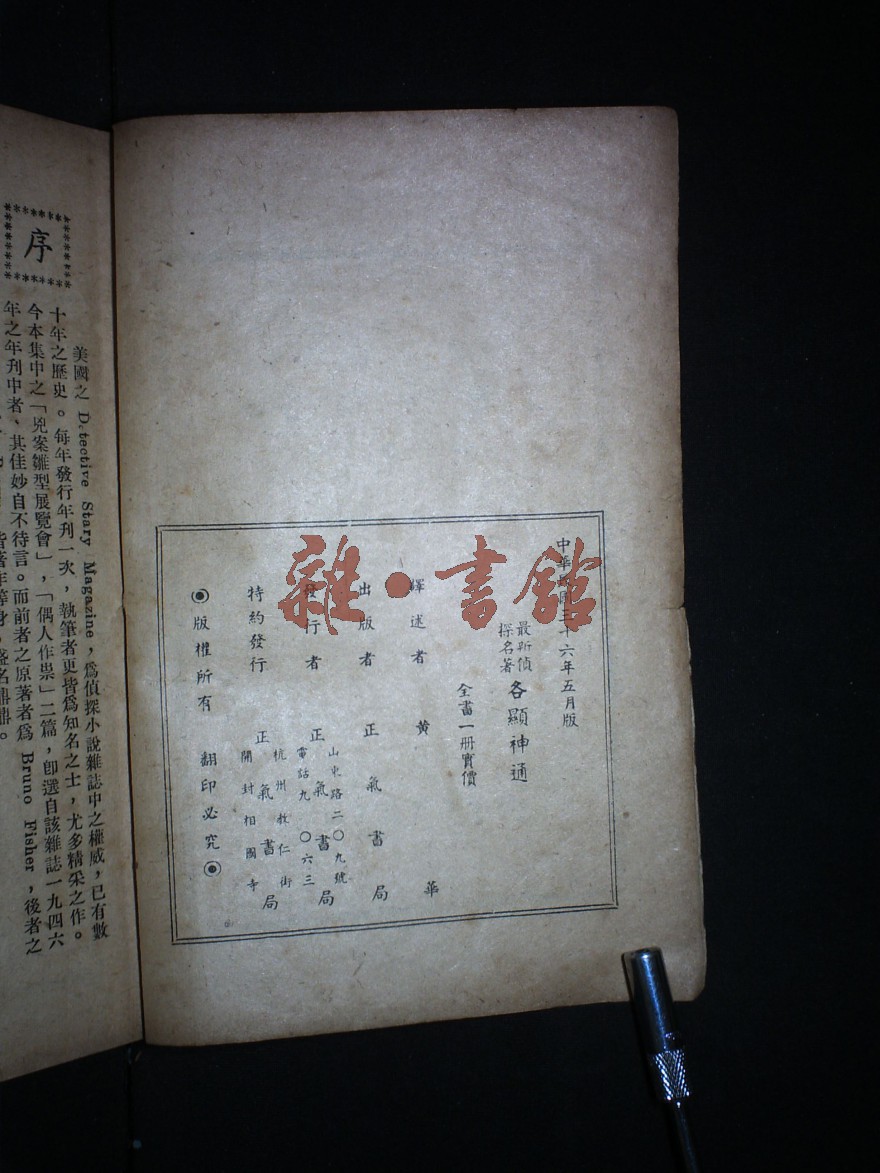 中華民國三十六年五月版
最新偵探名著 各顯神通
全書一册實價
譯述者 黄華
出版者 正氣書局
發行者 正氣書局
山東路二〇九號
電話九〇六三
特約發行 正氣書局
杭州救仁街
開封相國寺
版權所有 翻印必究
雜·書館
序
美國之 Detective Stary Magazine,爲偵探小說雜誌中之權威,已有數
十年之歷史。每年發行年刊一次,執筆者更皆爲知名之士,尤多精采之作。
今本集中之「兇案雛型展覽會」,「偶人作祟」二篇,卽選自該雜誌一九四六
年之年刊中者、其佳妙自不待言。而前者之原著者爲 Bruno Fisher,後者之
皆著作等身,盛名鼎鼎。